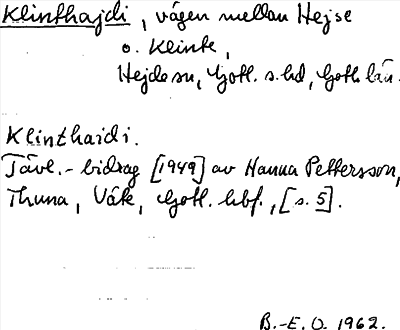 Klinthajdi, vägen mellan Hejde
o. Klinte,
Hejde sn, Gotl. s. hd, Gotl. län.
Klinthaidi.
Tävl.-bidrag [1949] av Hanna Pettersson,
Thuna, Väte, Gotl. hbf., [s. 5].
B.-E. O. 1962.